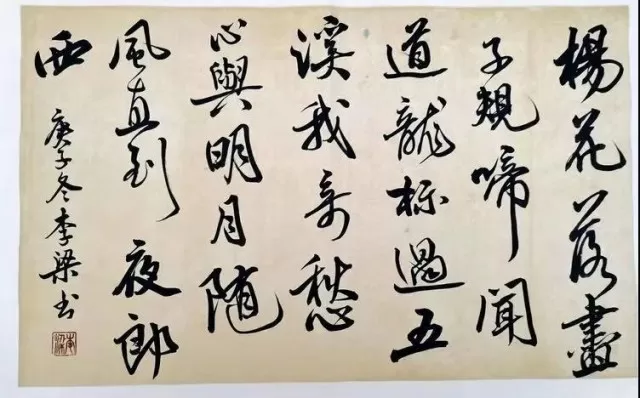 楊花落盡
子規啼聞
道龍标過五
溪我寄愁
心與明月随
風直到夜郎
西
庚子冬李梁书